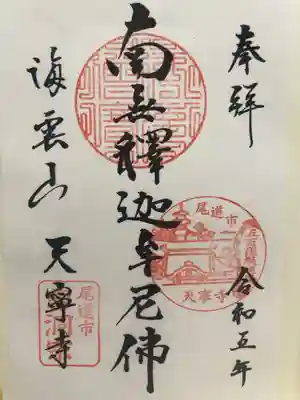 奉拝
令和五年
南無釋迦牟尼佛
海雲山 天寧寺
尾道市
天寧寺
尾道市